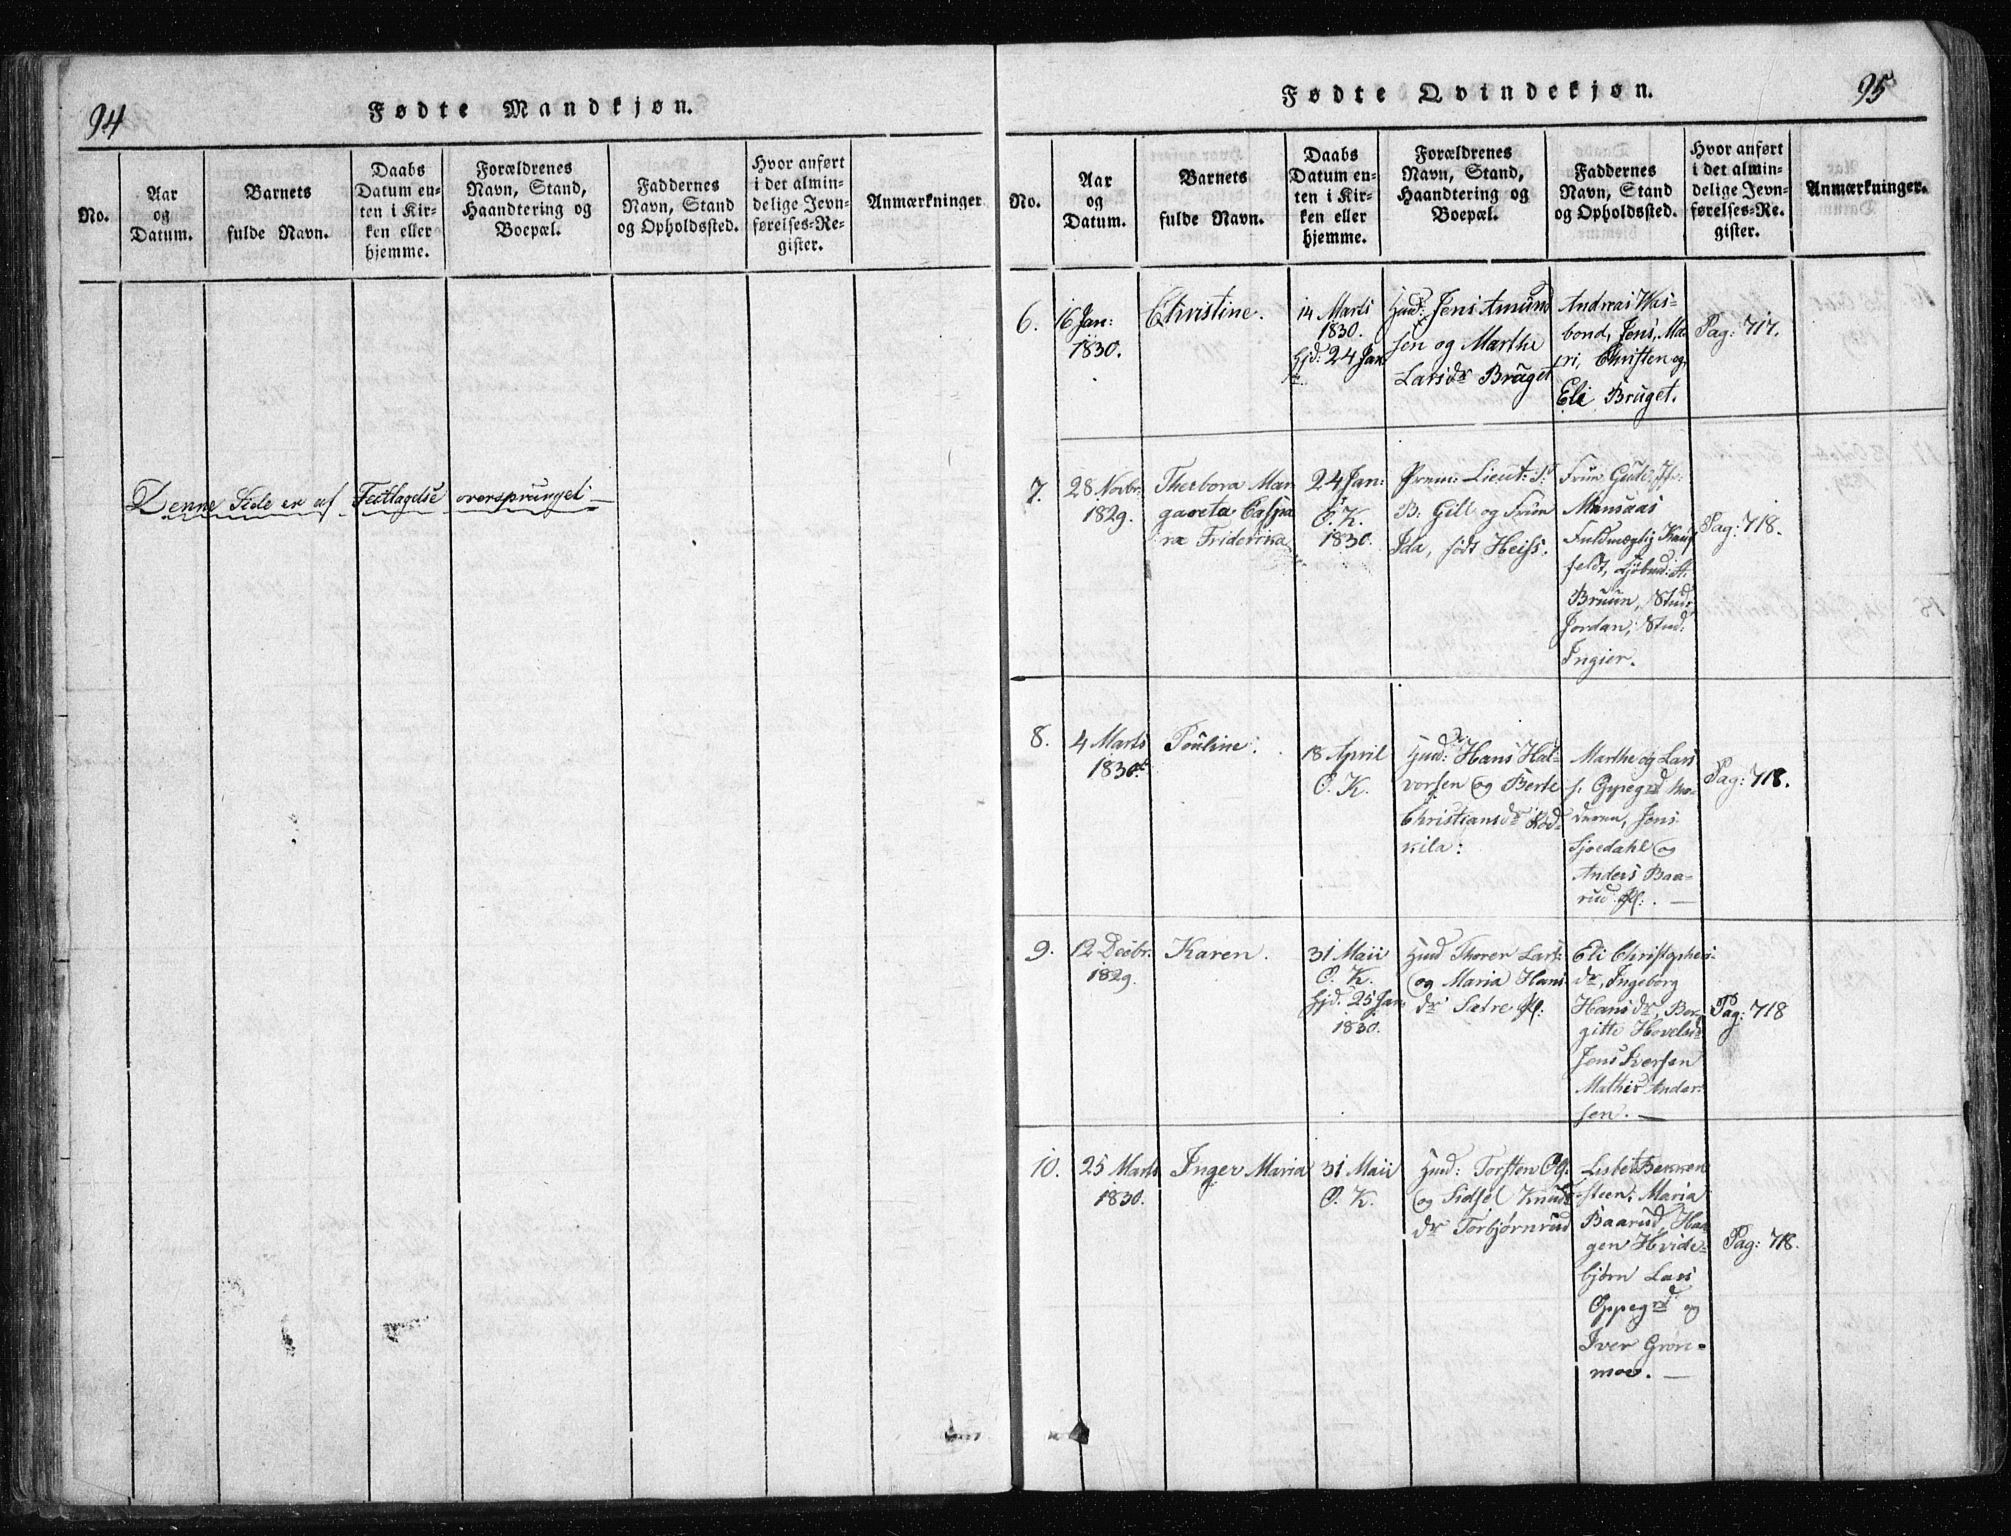 94
Fødte Mandkjøn.
No.
Aar
og
Datum.
Barnets
fulde Navn.
Daabs
Datum en-
ten i Kir-
ken eller
hjemme.
Forældrenes
Navn, Stand,
Haandtering og
Boepæl.
Faddernes
Navn, Stand
og Opholdssted.
Hvor anført
i det almin-
delige Jevn-
førelses-Re-
gister.
Anmærkninger
Denne Side er af Feiltagelse oversprunget
95
Fødte Qvindekjøn.
No.
Aar
og
Datum.
Barnets
fulde Navn.
Daabs
Datum en-
ten i Kir-
ken eller
hjemme.
Forældrenes
Navn, Stand,
Haandtering og
Boepæl.
Faddernes
Navn, Stand
og Opholdssted.
Hvor anført
i det almin-
delige Jevn-
førelses-Re-
gister.
Anmærkninger.
6.
16 Jan:
1830.
Christine.
14 Marts
1830.
hjd: 24 Jan
Huusm: Jens Amund
sen og Marthe
Larsdr Bruget
Andreas Was-
bond, Jens, Ma-
ri, Christen og
Eli Bruget.
Pag: 717.
7.
28 Novbr:
1829.
Thesbora Mar
gareta Caspa
ra Friderika
24 Jan:
O. K.
1830.
Prem: Lieut: S:
B. Gill og Frue
Ida, født Heiss.
Frue Gude,
Munsaas
Fuldmægtig
feldt,
Bruun, Stud:
Jordan, Stud:
Ingier.
Pag: 718.
8.
4 Marts
1830.
Pouline.
18 April
O. K.
Huusm: Hans Hal-
vorsen og Berte
Christiansdr Kod-
kila:
Marthe og Lars
s. Oppegrd Mo-
deren, Jens
Sjoedahl og
Anders Baa-
rud.
Pag: 718.
9.
12 Decbr:
1829.
Karen.
31 Maii
O. K.
hjd: 25 Jan:
1830.
Thorer Lars:
og Maria Hans
dr Sætre
Eli Christophers-
dr, Ingeborg
Hansdr, Bor-
gitte Hovelsdr
Jens Iversen
Mathis Ander-
sen.
Pag: 718
10.
25 Marts
1830.
Inger Maria
31 Maii
O. K.
Torsten Ol:
og Sidsel Knuds
dr Torbjørnrud
Lisbet Bekken
steen, Maria
Baarud, Haa
gen Hvide-
bjørn Lars
Oppegrd og
Iver Grøn-
moe.
Pag: 718.